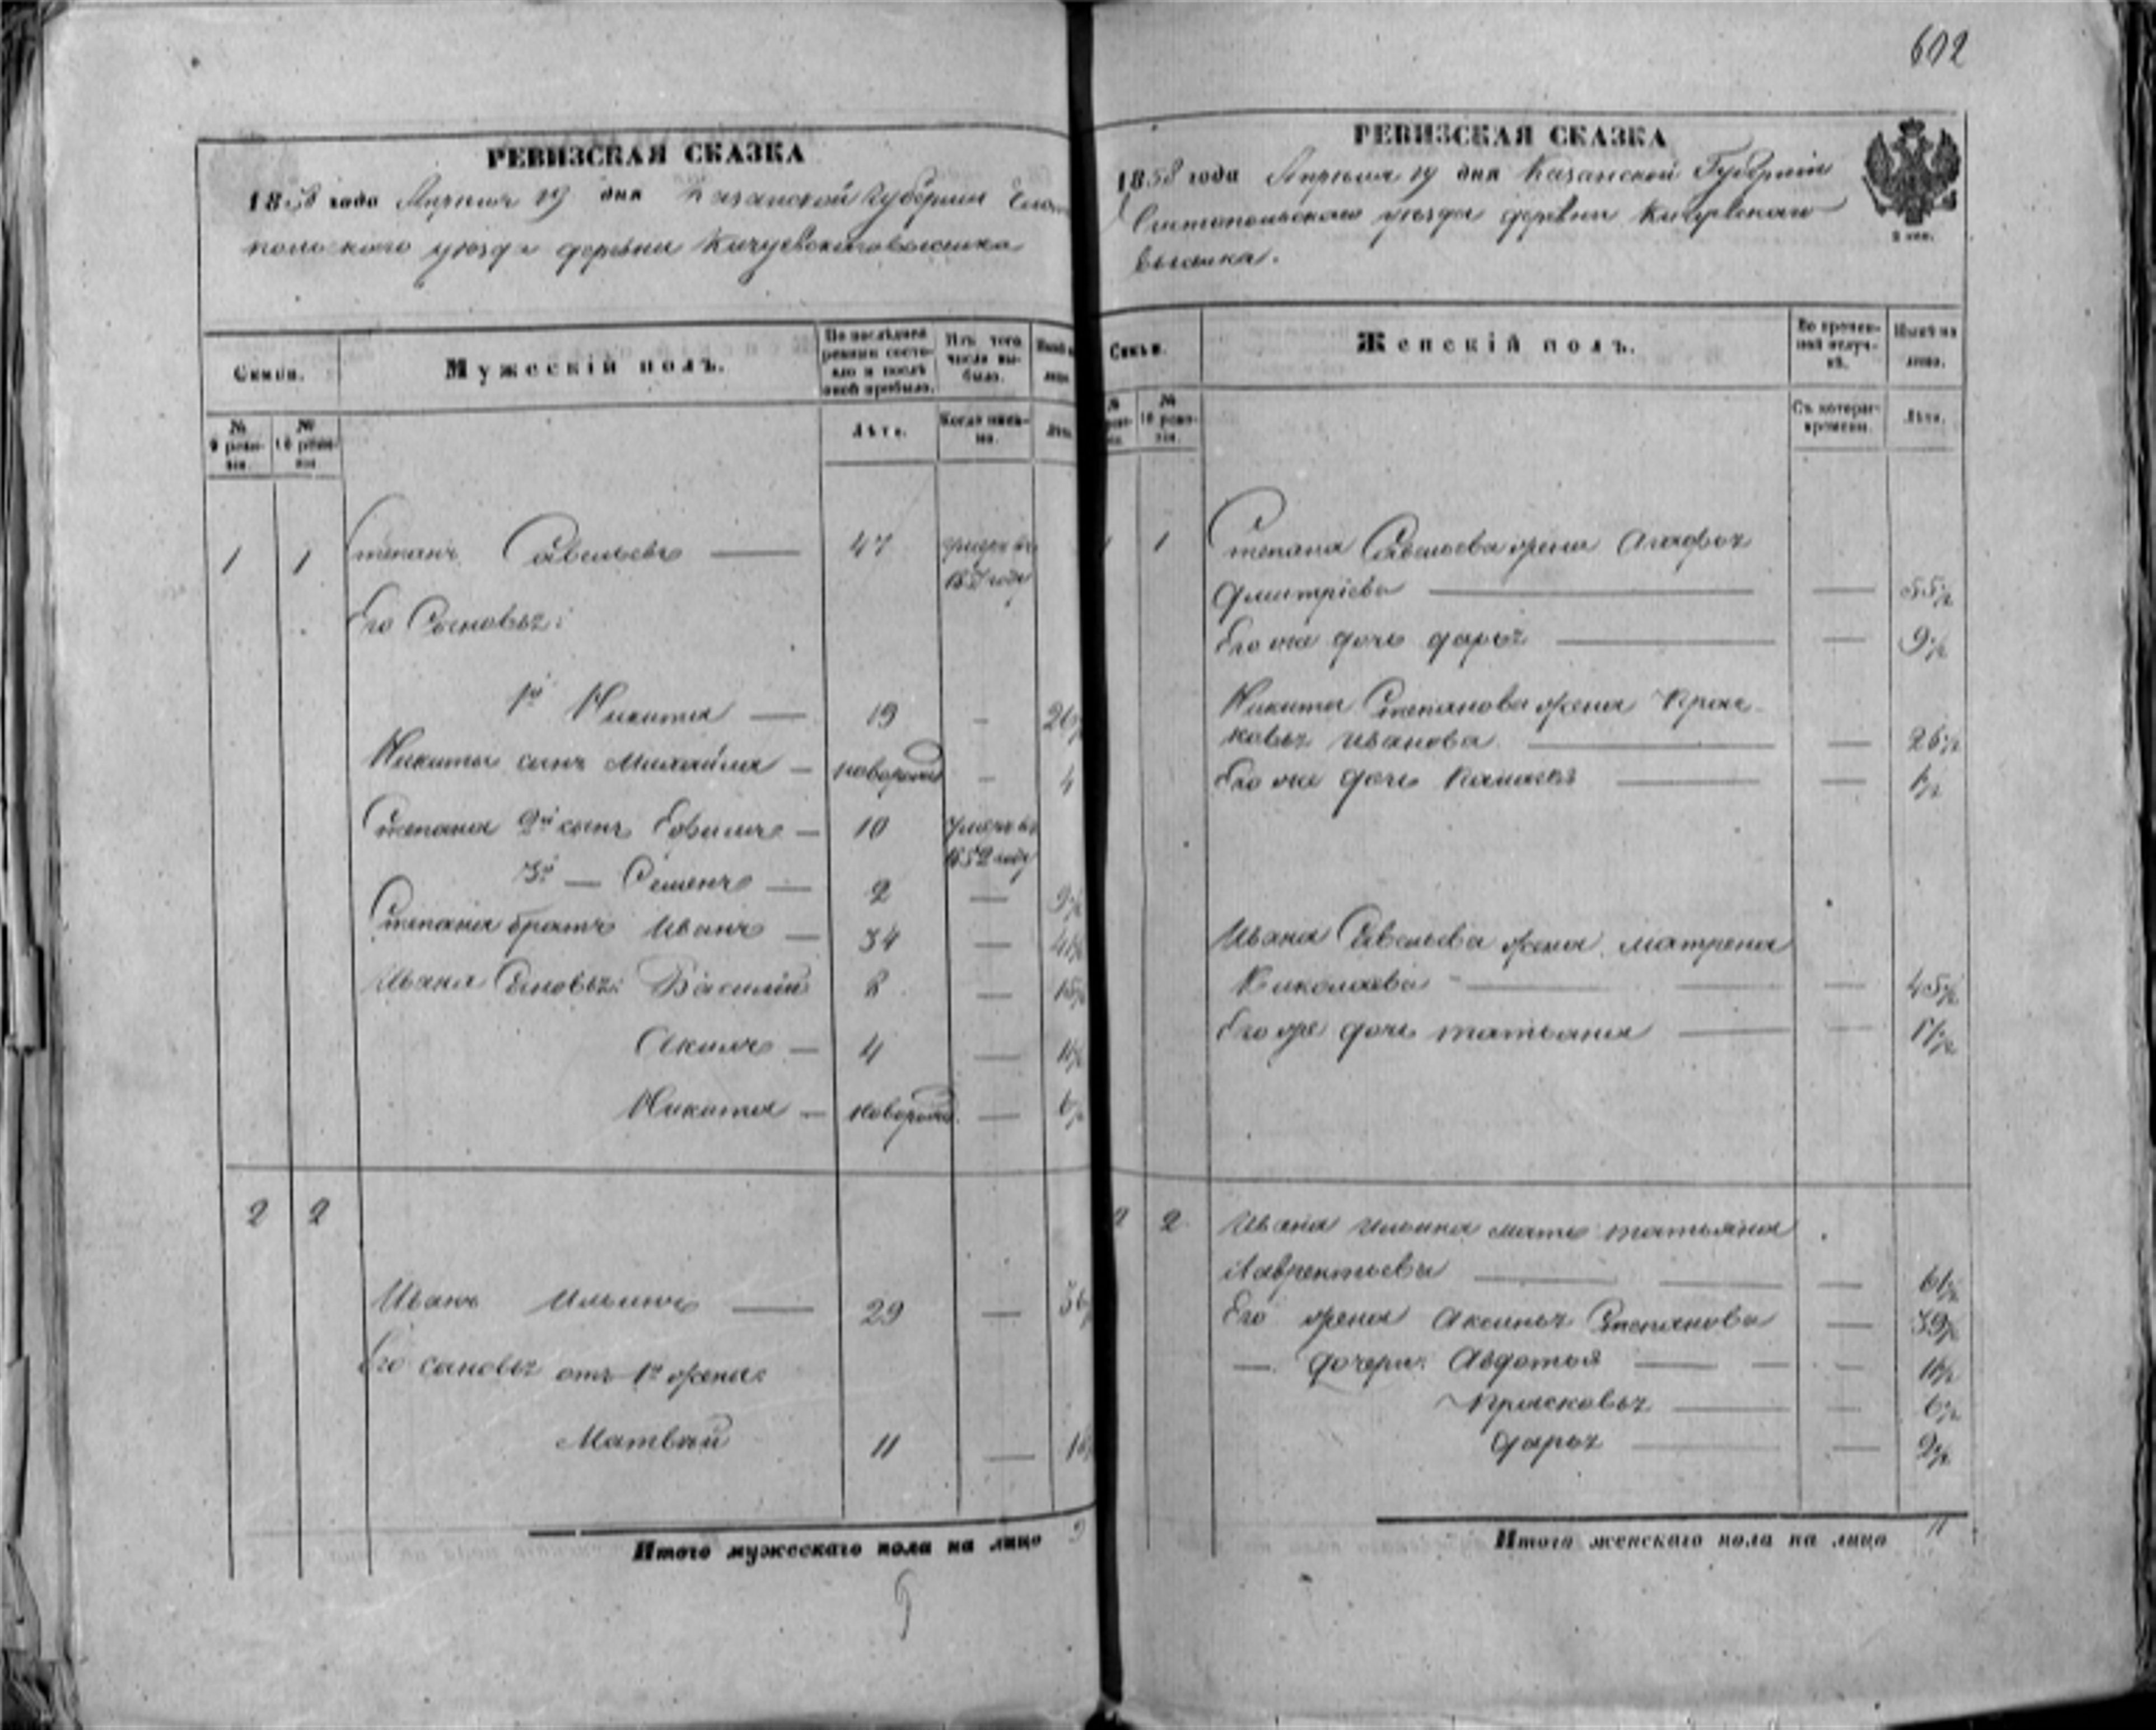 602
РЕВИЗСКАЯ СКАЗКА
1858 года Апреля 19 дня Казанской Губернии Чисто
польского уезда деревни Кичуевскаго выселка
Семьи.
Мужескій полъ.
По послѣдней ревизіи состояло и послѣ оной прибыло.
Изъ того числа выбыло.
№ 9 ревизіи.
№ 10 ревизіи
Лѣта.
Когда именно.
1 1 Степанъ Савельевъ 47
Его Сыновья:
1й Никита 19 —
Никиты сынъ Михайла — новорож — 4
Степана 2й сынъ Ефимъ — 10 умеръ въ
1852 году
3й — Семенъ — 2 —
Степана братъ Иванъ — 34 —
Ивана Сыновья: Василій 8 —
Акимъ — 4 —
Никита — новорож. —
2 2
Иванъ Ильинъ 29 —
Его сыновья отъ 1й жены:
Матвей 11 —
Итого мужескаго пола на лицо 9
РЕВИЗСКАЯ СКАЗКА
1858 года Апреля 19 дня Казанской Губерніи
Чистопольскаго уезда деревни Кичуевскаго
выселка.
2 коп.
Семьи.
Женскій полъ.
Во временной отлучкѣ.
Нынѣ на лицо.
№ 10 ревизіи.
Съ котораго времени.
Лѣта.
1 Степана Савельева жена Агафья
Дмитріева — 55½
Его же дочь Дарья — 9½
Никиты Степанова жена Прас-
ковья Иванова — 26½
Его же дочь —
Ивана Савельева жена Матрена
Николаева — 45½
Его же дочь Татьяна —
2 2 Ивана Ильина мать Татьяна
Лаврентьева — 61½
Его жена Аксинья Степанова — 39½
— дочери: Авдотья —
Прасковья — 6½
Дарья — 2½
Итого женскаго пола на лицо 11